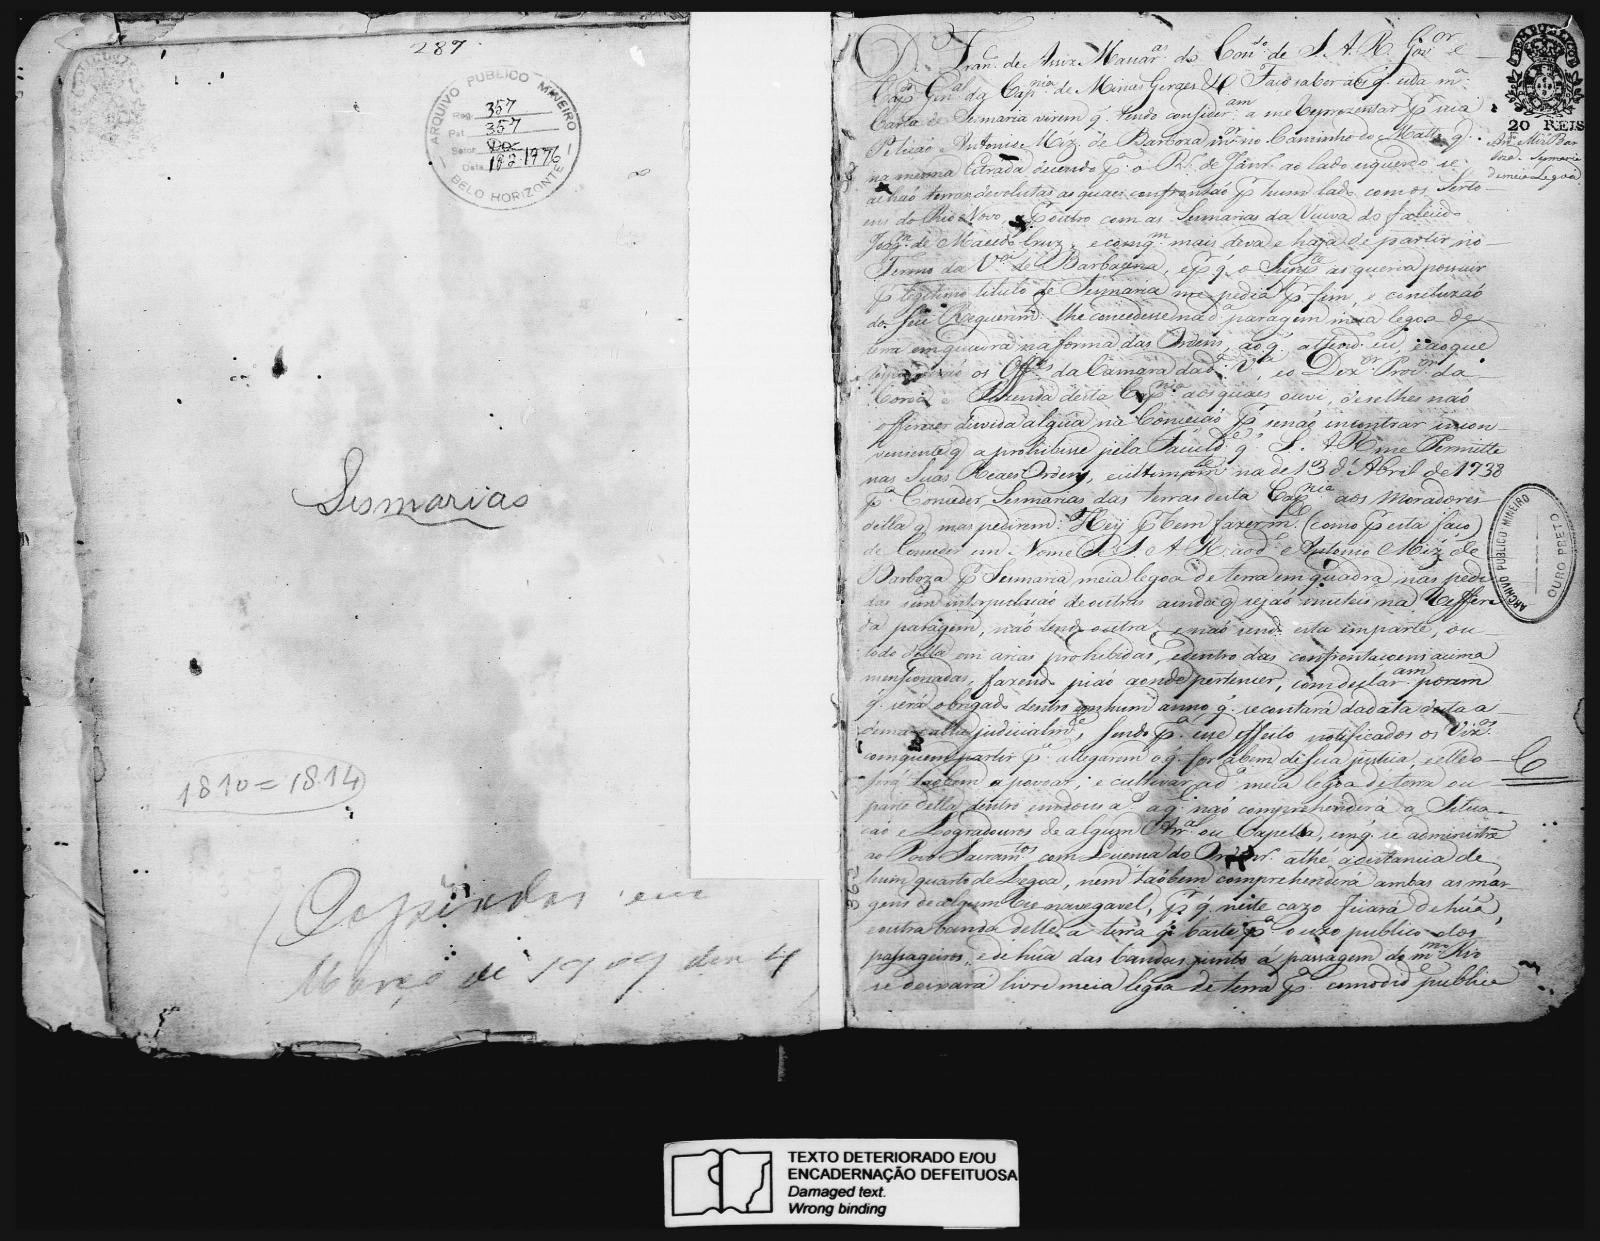 287
ARQUIVO PUBLICO MINEIRO
Reg. 357
Pat. 357
Setor Doc
Data 18.2.1976
BELO HORIZONTE
Sesmarias
1810 = 1814
Copiadas em
Março de 1909 den 4
BEM PUBLICO
20 REIS
D. Fran.co de Assiz Mascar.as do Con.do de S. A. R. Gov.or e
Cap.m Gen.al da Cap.nia de Minas Geraes &. Faço saber aos q. esta m.a
Carta de Sesmaria virem q. tendo consider.am a me Reprezentar p. sua
Petição Antonio Miz. de Barboza m.or no Caminho do Matto q.
na mesma Estrada decendo p.a o R.o de Jan.ro ao lado esquerdo se
achão terras devolutas as quaes confrontão p. hum lado com os Serto-
ens do Rio Novo, e p. outro com as Sesmarias da Viuva do falecido
Joaq.m de Macedo Cruz, e com q.m mais deva e haja de partir no
Termo da V.a de Barbacena, e p. q. o Sup.te as queria possuir
p. legitimo titulo de Sesmaria me pedia p. fim, e concluzão
do seu Requerim.to lhe concedesse na d.a paragem meia legoa de
terra em quadra na forma das Ordens, ao q. attend.o eu e ao que
os Off.es da Camara da d.a V.a e o Dez.or Proc.or da
Coroa e Fazenda desta Cap.nia aos quaes ouvi, de se lhes não
offerecer duvida algũa na Concessão p. senão encontrar incon-
veniente q. a prohibisse pela Faculd.e q. S. A. R. me Permitte
nas Suas Reaes Ordens, e ultimam.te na de 13 d'Abril de 1738
p.a Conceder Sesmarias das terras desta Cap.nia aos Moradores
della q. mas pedirem: Hey p. bem fazer m.ce (como p. esta faço)
de Conceder em Nome de S. A. R. ao d.o Antonio Miz. de
Barboza p. Sesmaria meia legoa de terra em quadra nas pedi-
das sem interpolação de outras ainda q. sejão inuteis na Reffere-
da paragem, não tendo outra, e não sendo esta em parte, ou
todo della em arias prohibidas, e dentro das confrontacoens acima
mensionadas, fazendo pião aonde pertencer, com declar.am porem
q. será obrigado dentro em hum anno q. se contará da data desta a
demarcalla judicialm.te, sendo p.a esse effeito notificados os Viz.os
com quem partir p.a allegarem o q. for a bem de sua justiça, e elle o
será taobem a povoar, e cultivar a d.a meia legoa de terra ou
parte della dentro em dous a.s a q.l não comprehenderá a Situa-
cão e Logradouros de algum Arr.al ou Capella, em q. se administre
ao Povo Sacram.tos com Licença do Ordin.r.o athé a distancia de
hum quarto de Legoa, nem taobem comprehenderá ambas as mar-
gens de algum Rio navegavel, p. q. neste cazo ficará de hũa,
e outra banda delle a terra q. baste p.a o uzo publico dos
passageiros, e de hũa das bandas junto á passagem do m.mo Rio
se deixará livre meia legoa de terra p.a comodid.e publica
Ant.o Miz Bar
boza. Sesmaria
de meia Legoa
ARCHIVO PUBLICO MINEIRO
OURO PRETO
TEXTO DETERIORADO E/OU
ENCADERNAÇÃO DEFEITUOSA
Damaged text.
Wrong binding